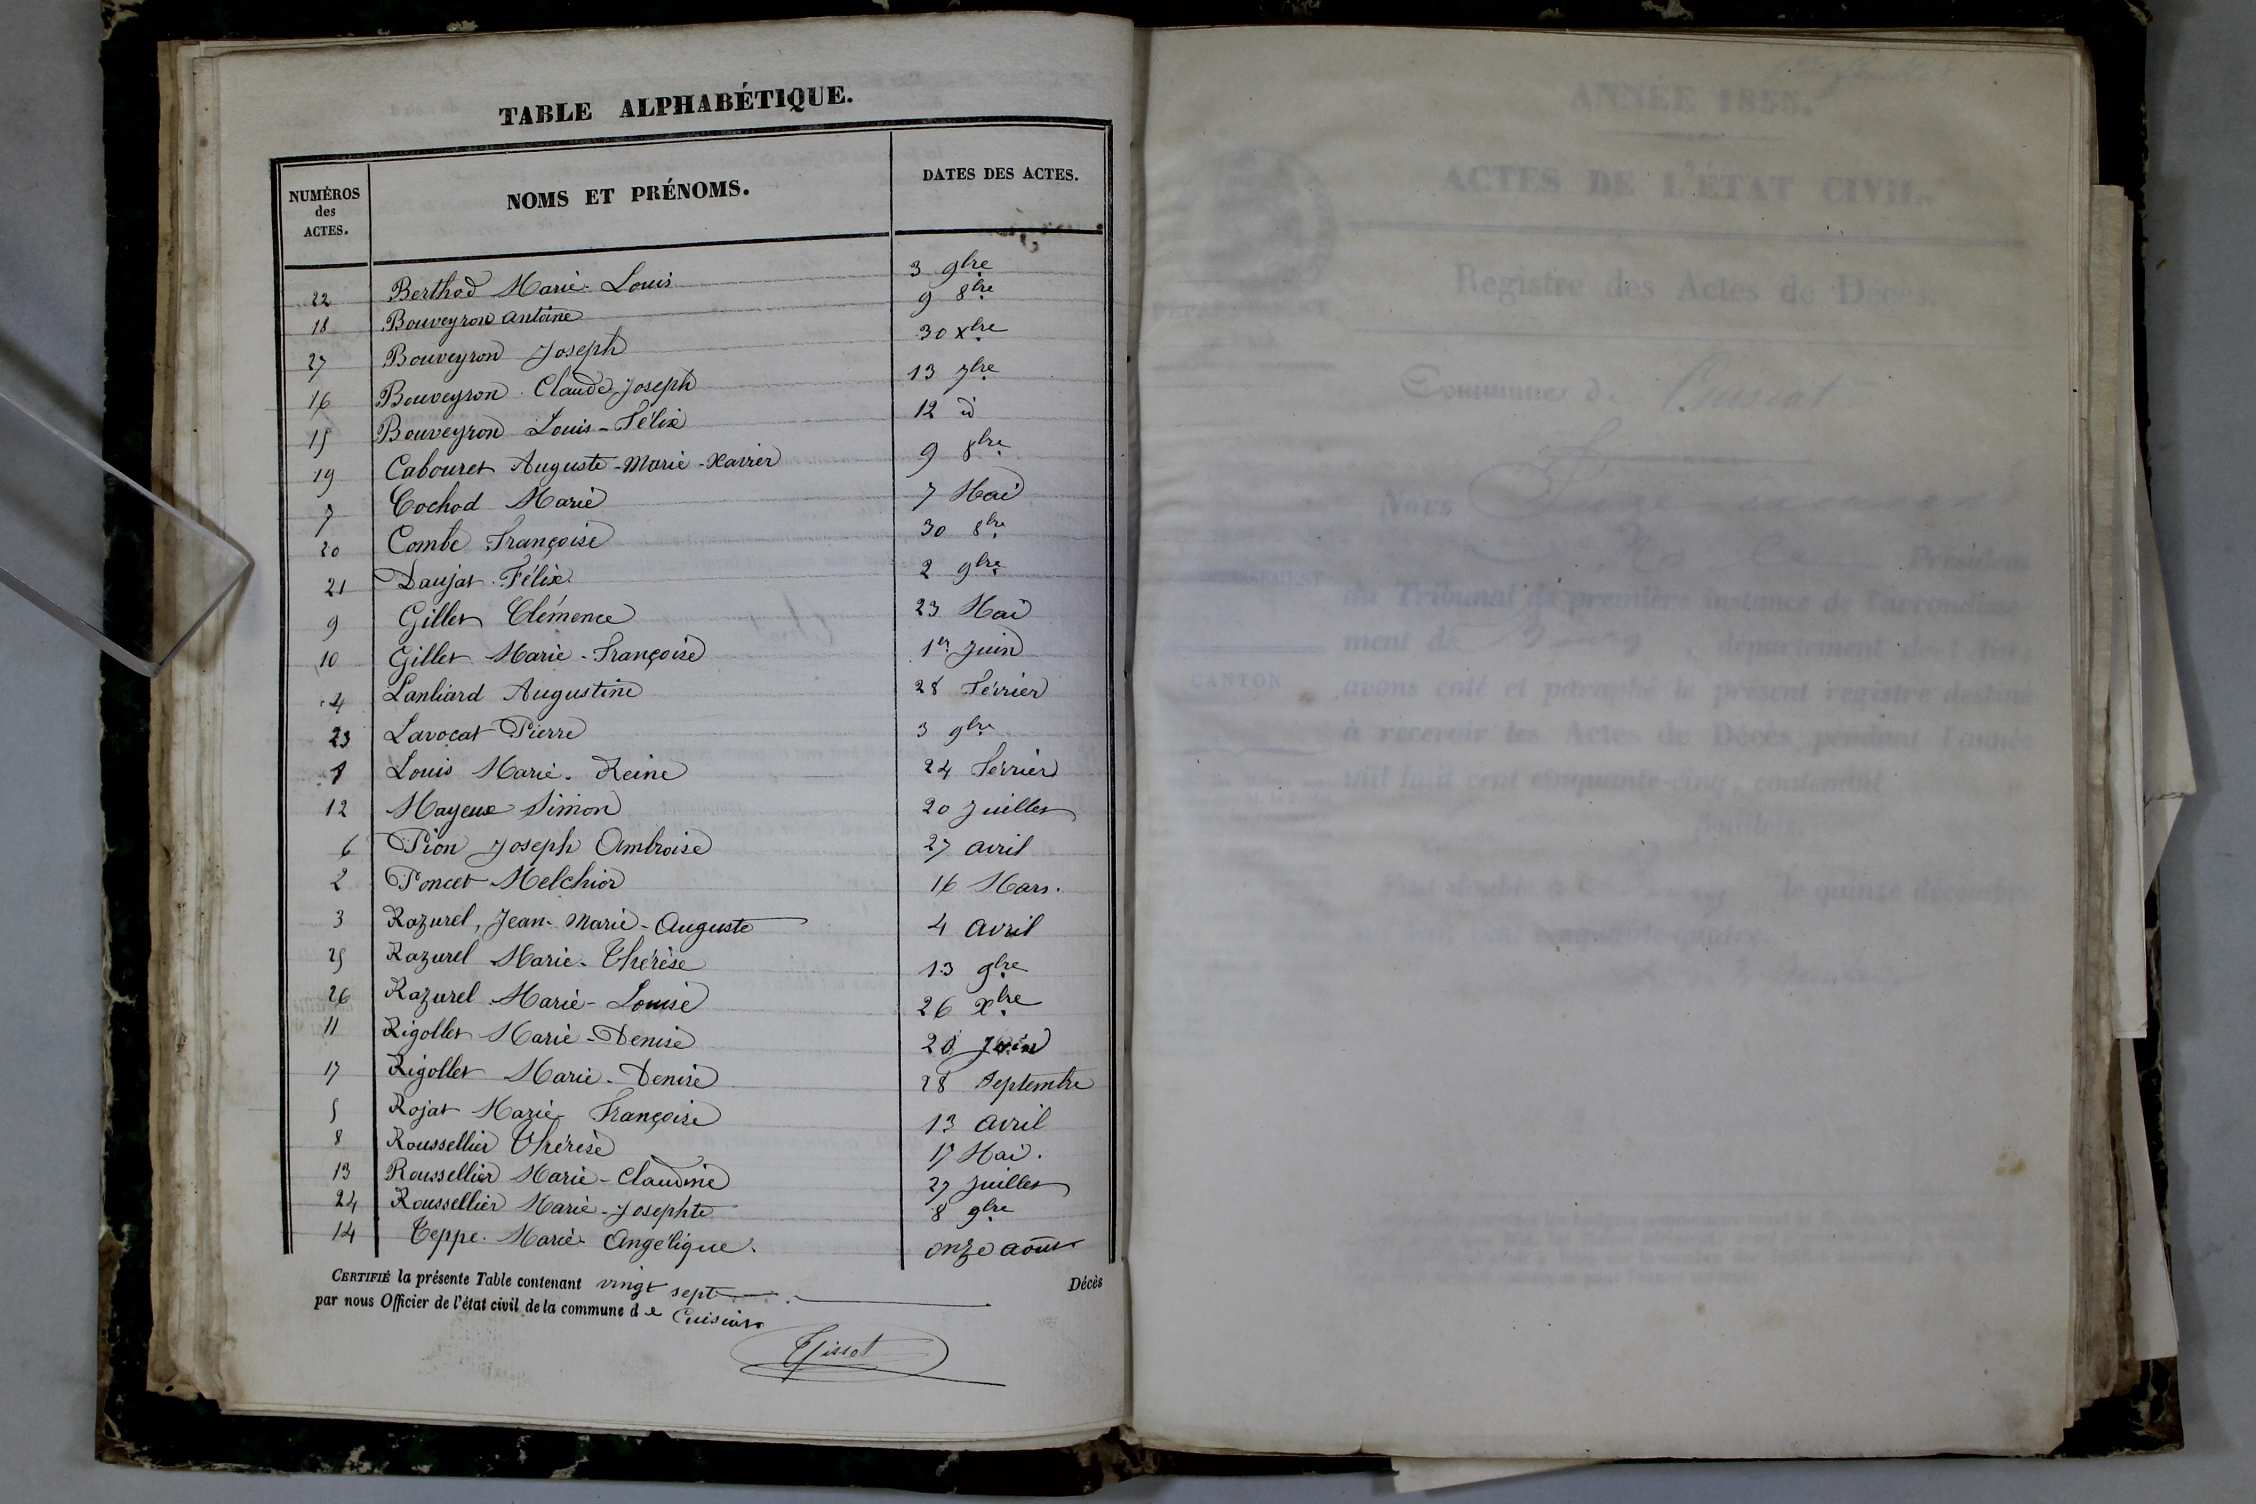 TABLE ALPHABÉTIQUE.
NUMÉROS des ACTES. NOMS ET PRÉNOMS. DATES DES ACTES.
22 Berthod Marie-Louis 3 9bre
18 Bouveyron antoine 9 8bre
27 Bouveyron Joseph 30 xbre
16 Bouveyron Claude Joseph 13 7bre
15 Bouveyron Louis-Félix 12 id
19 Cabouret Auguste-Marie-Xavier 9 8bre
7 Cochod Marie 7 Mai
20 Combe Françoise 30 8bre
21 Daujat Félix 2 9bre
9 Gillet Clémence 23 Mai
10 Gillet Marie-Françoise 1er Juin
4 Lanliard Augustine 28 Février
23 Lavocat Pierre 3 9bre
1 Louis Marie-Reine 24 Février
12 Mayeux Simon 20 Juillet
6 Pion Joseph Ambroise 27 avril
2 Poncet Melchior 16 Mars.
3 Razurel, Jean-Marie-Auguste 4 avril
25 Razurel Marie-Thérèse 13 9bre
26 Razurel Marie-Louise 26 Xbre
11 Rigollet Marie-Denise 20 Juin
17 Rigollet Marie-Denise 28 Septembre
5 Rojat Marie Françoise 13 avril
8 Roussellier Thérèse 17 Mai.
13 Roussellier Marie-Claudine 27 Juillet
24 Roussellier Marie-Josephte 8 9bre
14 Teppe Marie Angélique. onze août
CERTIFIÉ la présente Table contenant vingt sept Décès
par nous Officier de l'état civil de la commune de Cuisiat
Tissot
ANNÉE 1855.
ACTES DE L'ÉTAT CIVIL.
Registre des Actes de Décès.
Commune de Cuisiat
Nous
Président
du Tribunal de première instance de l'arrondisse-
ment de Bourg, département de l'Ain,
CANTON
avons coté et paraphé le présent registre destiné
à recevoir les Actes de Décès pendant l'année
mil huit cent cinquante-cinq, contenant
feuillets.
le quinze décembre
cent cinquante-quatre.